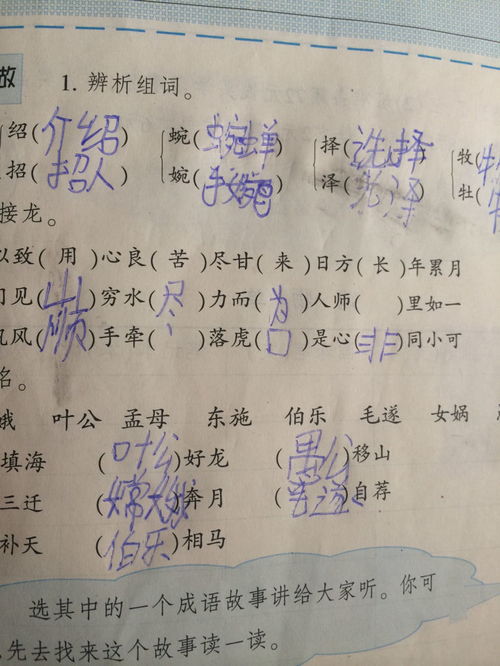 故
1. 辨析组词。
绍(介绍) 蜿(蜿蝉) 择(选择) 牧(
招(招人) 婉( 泽( 泽) 牡(
接龙。
以致(用)心良(苦)尽甘(来)日方(长)年累月
门见(山)穷水(尽)力而(为)人师( )里如一
风(顺)手牵( )落虎(口)是心(非)同小可
名。
娥 叶公 孟母 东施 伯乐 毛遂 女娲
填海 (叶公)好龙 (愚公)移山
三迁 (嫦娥)奔月 (毛遂)自荐
补天 (伯乐)相马
选其中的一个成语故事讲给大家听。你可
先去找来这个故事读一读。